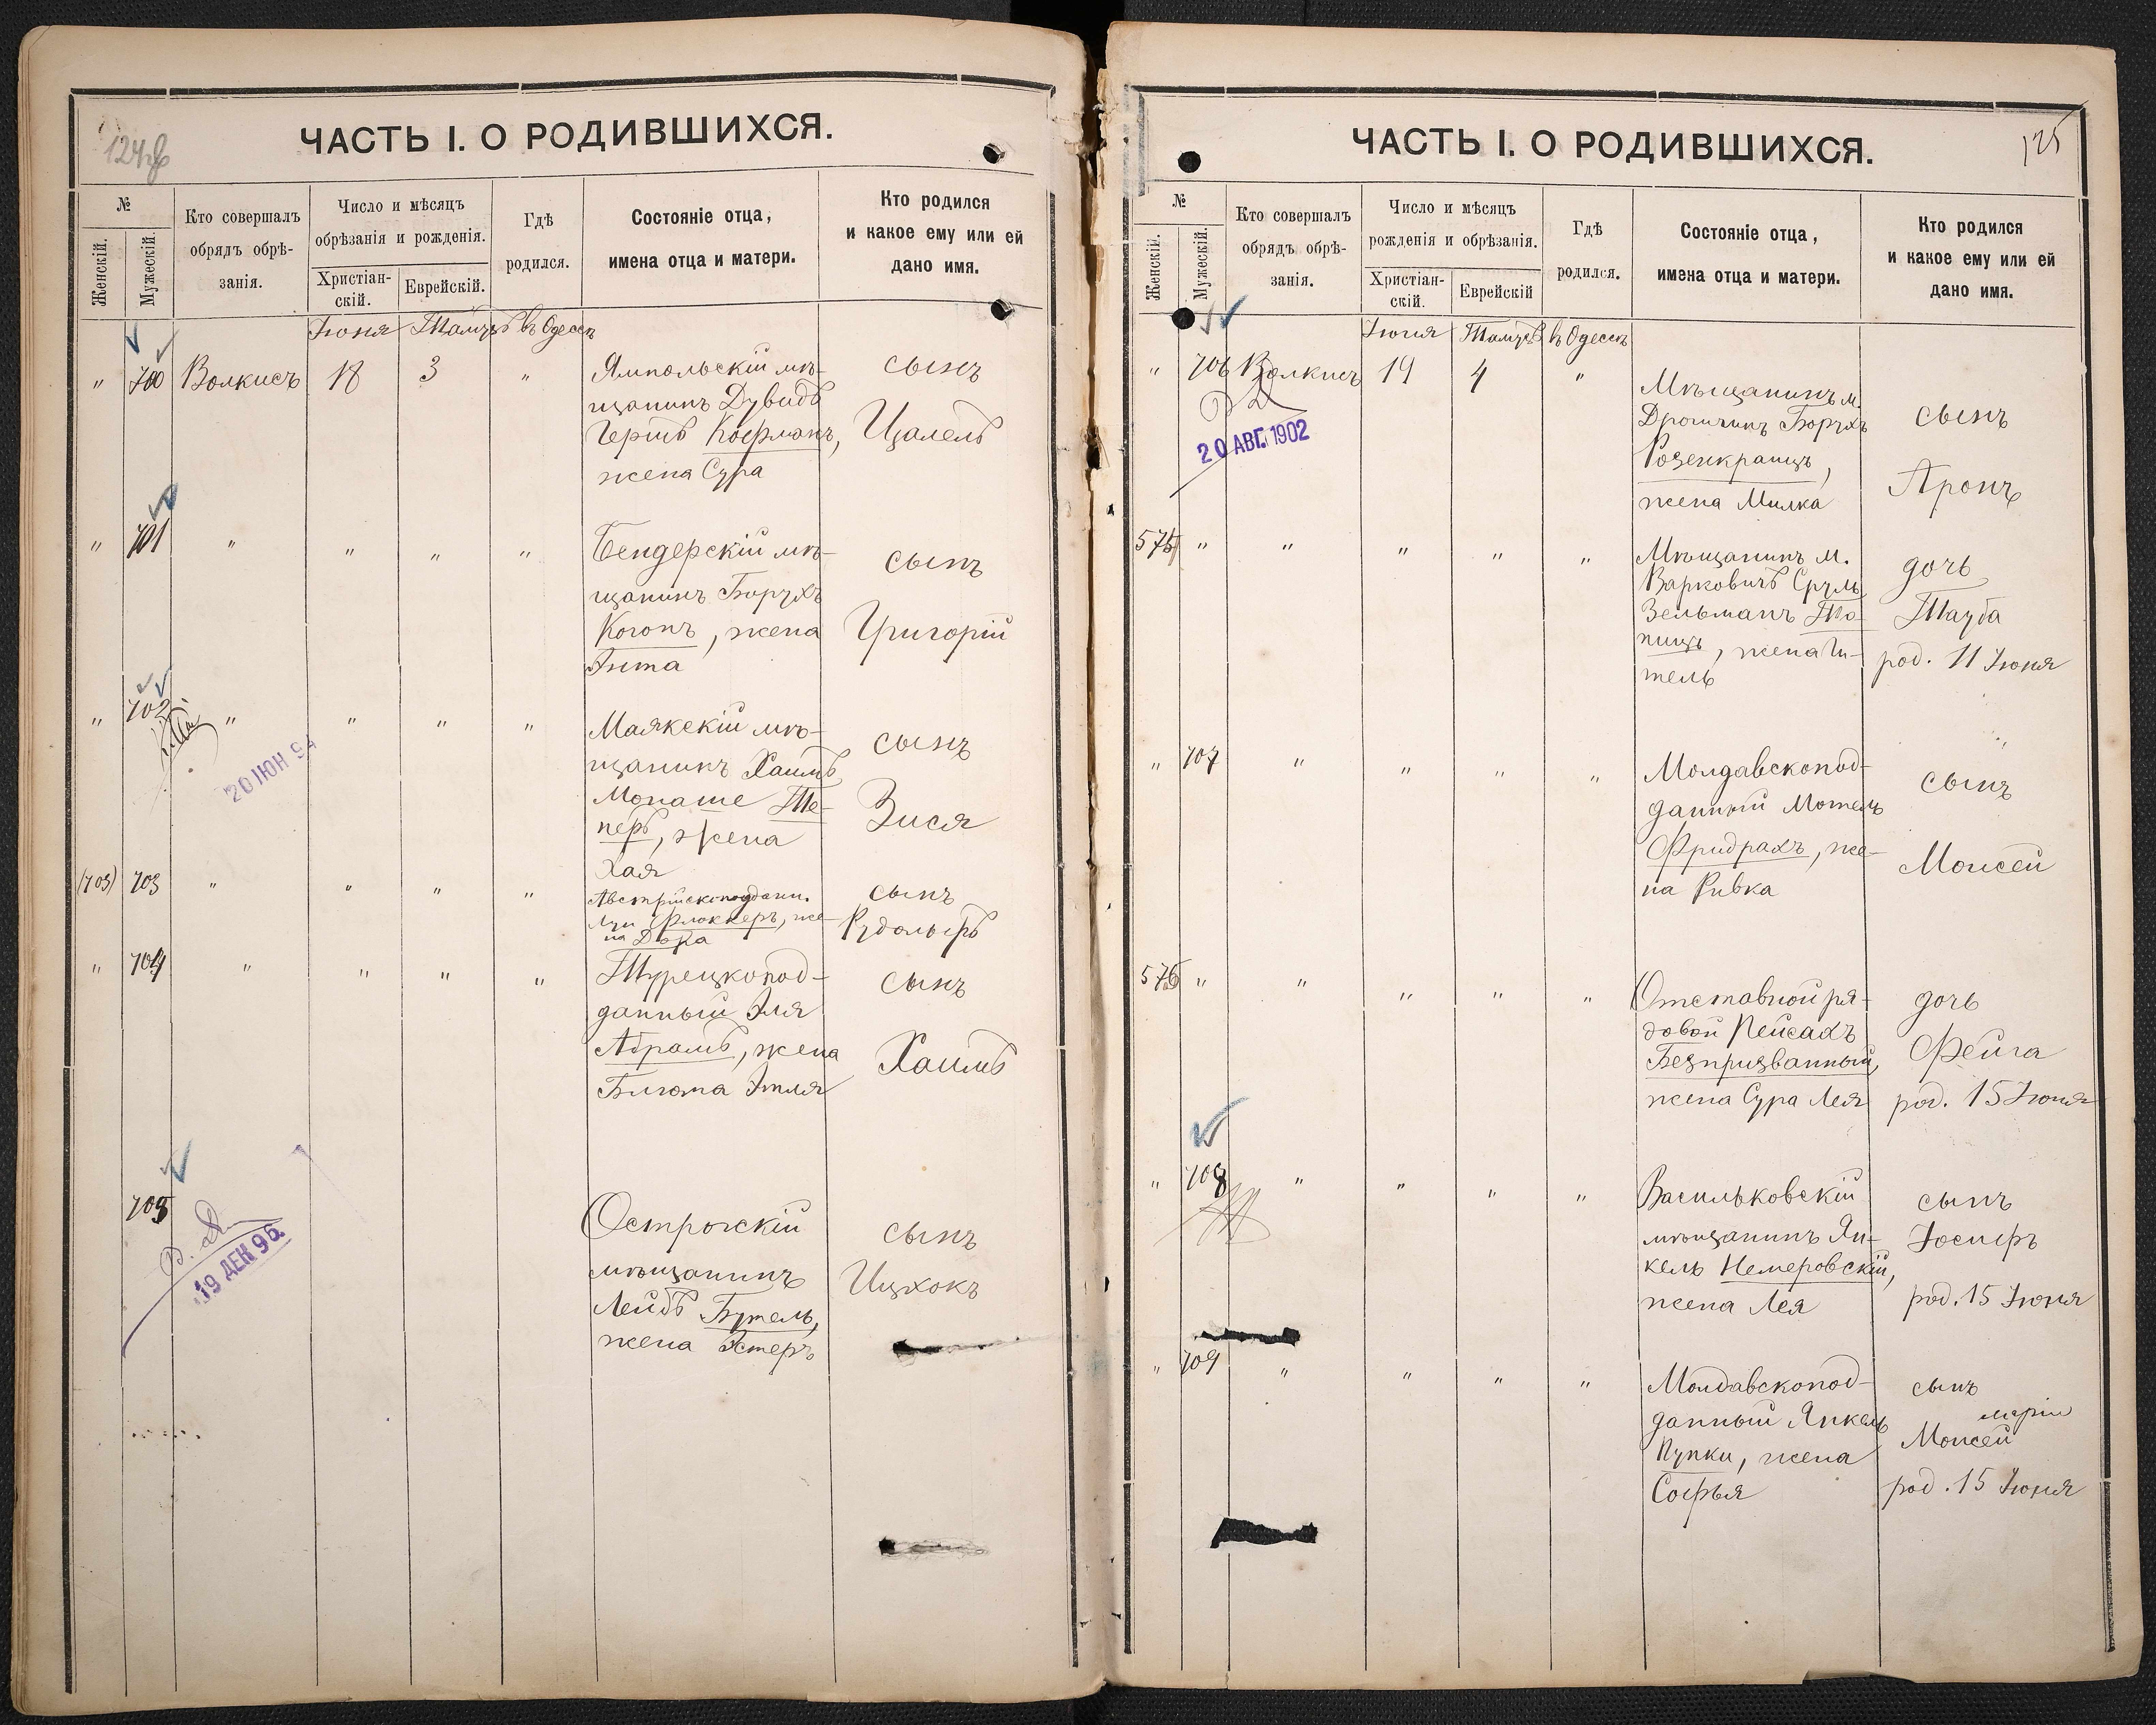 124 об
ЧАСТЬ I. О РОДИВШИХСЯ.
№
Женскій.
Мужескій.
Кто совершалъ
обрядъ обрѣ-
занія.
Число и мѣсяцъ
обрѣзанія и рожденія.
Христіан-
скій.
Еврейскій.
Гдѣ
родился.
Состояніе отца,
имена отца и матери.
Кто родился
и какое ему или ей
дано имя.
Іюня Тамузъ въ Одессѣ
" 700 Волкисъ 18 3 "
Ямпольскій мѣ-
щанинъ Дувидъ
Гершъ Кофманъ,
жена Сура
сынъ
Цалель
" 701 " " " "
Бендерскій мѣ-
щанинъ Борухъ
Когонъ, жена
Энта
сынъ
Григорій
" 702 " " " "
20 ІЮН 94
Маякскій мѣ-
щанинъ Хаимъ
Монаше Ше-
перъ, жена
Хая
сынъ
Зися
(703) 703 " " " "
Австрійскоподдан.
Луи Флоккеръ, же-
на Дора
сынъ
Рудольфъ
" 704 " " " "
Турецкопод-
данный Эля
Абрамъ, жена
Блюма Этля
сынъ
Хаимъ
705
19 ДЕК 96
Острожскій
мѣщанинъ
Лейбъ Бутель,
жена Эстеръ
сынъ
Ицхокъ
125
ЧАСТЬ I. О РОДИВШИХСЯ.
№
Женскій.
Мужескій.
Кто совершалъ
обрядъ обрѣ-
занія.
Число и мѣсяцъ
рожденія и обрѣзанія.
Христіан-
скій.
Еврейскій
Гдѣ
родился.
Состояніе отца,
имена отца и матери.
Кто родился
и какое ему или ей
дано имя.
Іюня Тамузъ въ Одессѣ
" 706 Волкисъ 19 4 "
20 АВГ. 1902
Мѣщанинъ м.
Дрогичинъ Борухъ
Розенкранцъ,
жена Милка
сынъ
Аронъ
575 " " " " "
Мѣщанинъ м.
Варковичъ Сруль
Зельманъ
жена Ги-
тель
дочь
Тауба
род. 11 Іюня
" 707 " " " "
Молдавскопод-
данный Мотель
Фридрахъ, же-
на Ривка
сынъ
Моисей
576 " " " " "
Отставной ря-
довой Пейсахъ
Безпризванный,
жена Сура Лея
дочь
Фейга
род. 15 Іюня
" 708 " " " "
Васильковскій
мѣщанинъ Ян-
кель Немеровскій,
жена Лея
сынъ
Іосифъ
род. 15 Іюня
" 709 " " " "
Молдавскопод-
данный Янкель
Пупки, жена
Софья
сынъ
Моисей
род. 15 Іюня